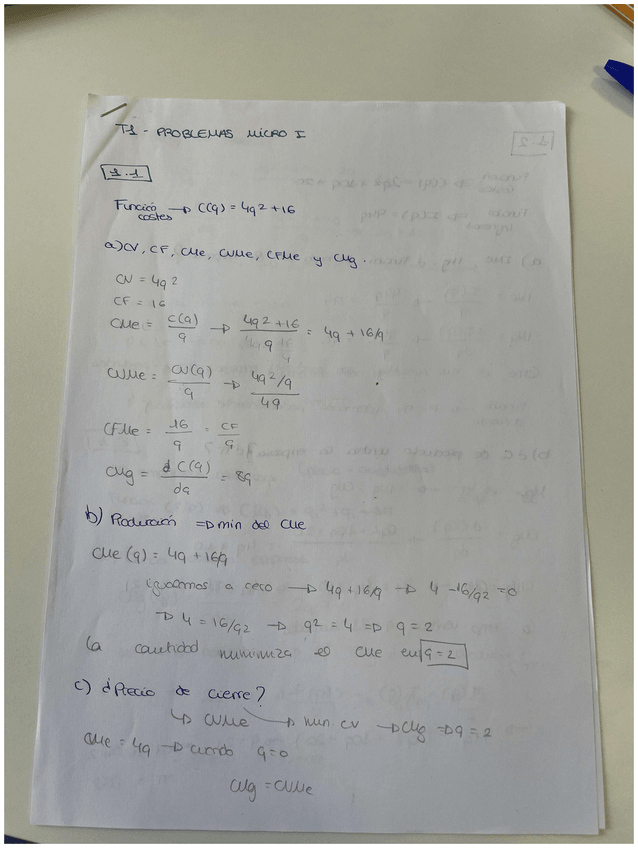 T1 - PROBLEMAS MICRO I
1.1
Función costes → C(q) = 4q² + 16
a) CV, CF, CMe, CVMe, CFMe y CMg.
CV = 4q²
CF = 16
CMe = C(q)/q → 4q² + 16/q = 4q + 16/q
CVMe = CV(q)/q → 4q²/q / 4q
CFMe = 16/q = CF/q
CMg = d C(q)/dq = 8q
b) Producción ⇒ min del CMe
CMe (q) = 4q + 16/q
igualamos a cero → 4q + 16/q → 4 - 16/q² = 0
→ 4 = 16/q² → q² = 4 ⇒ q = 2
la cantidad minimiza el CMe en q = 2
c) ¿Precio de cierre?
↳ CVMe → min. CV → CMg ⇒ q = 2
CMe = 4q → cuando q = 0
CMg = CVMe